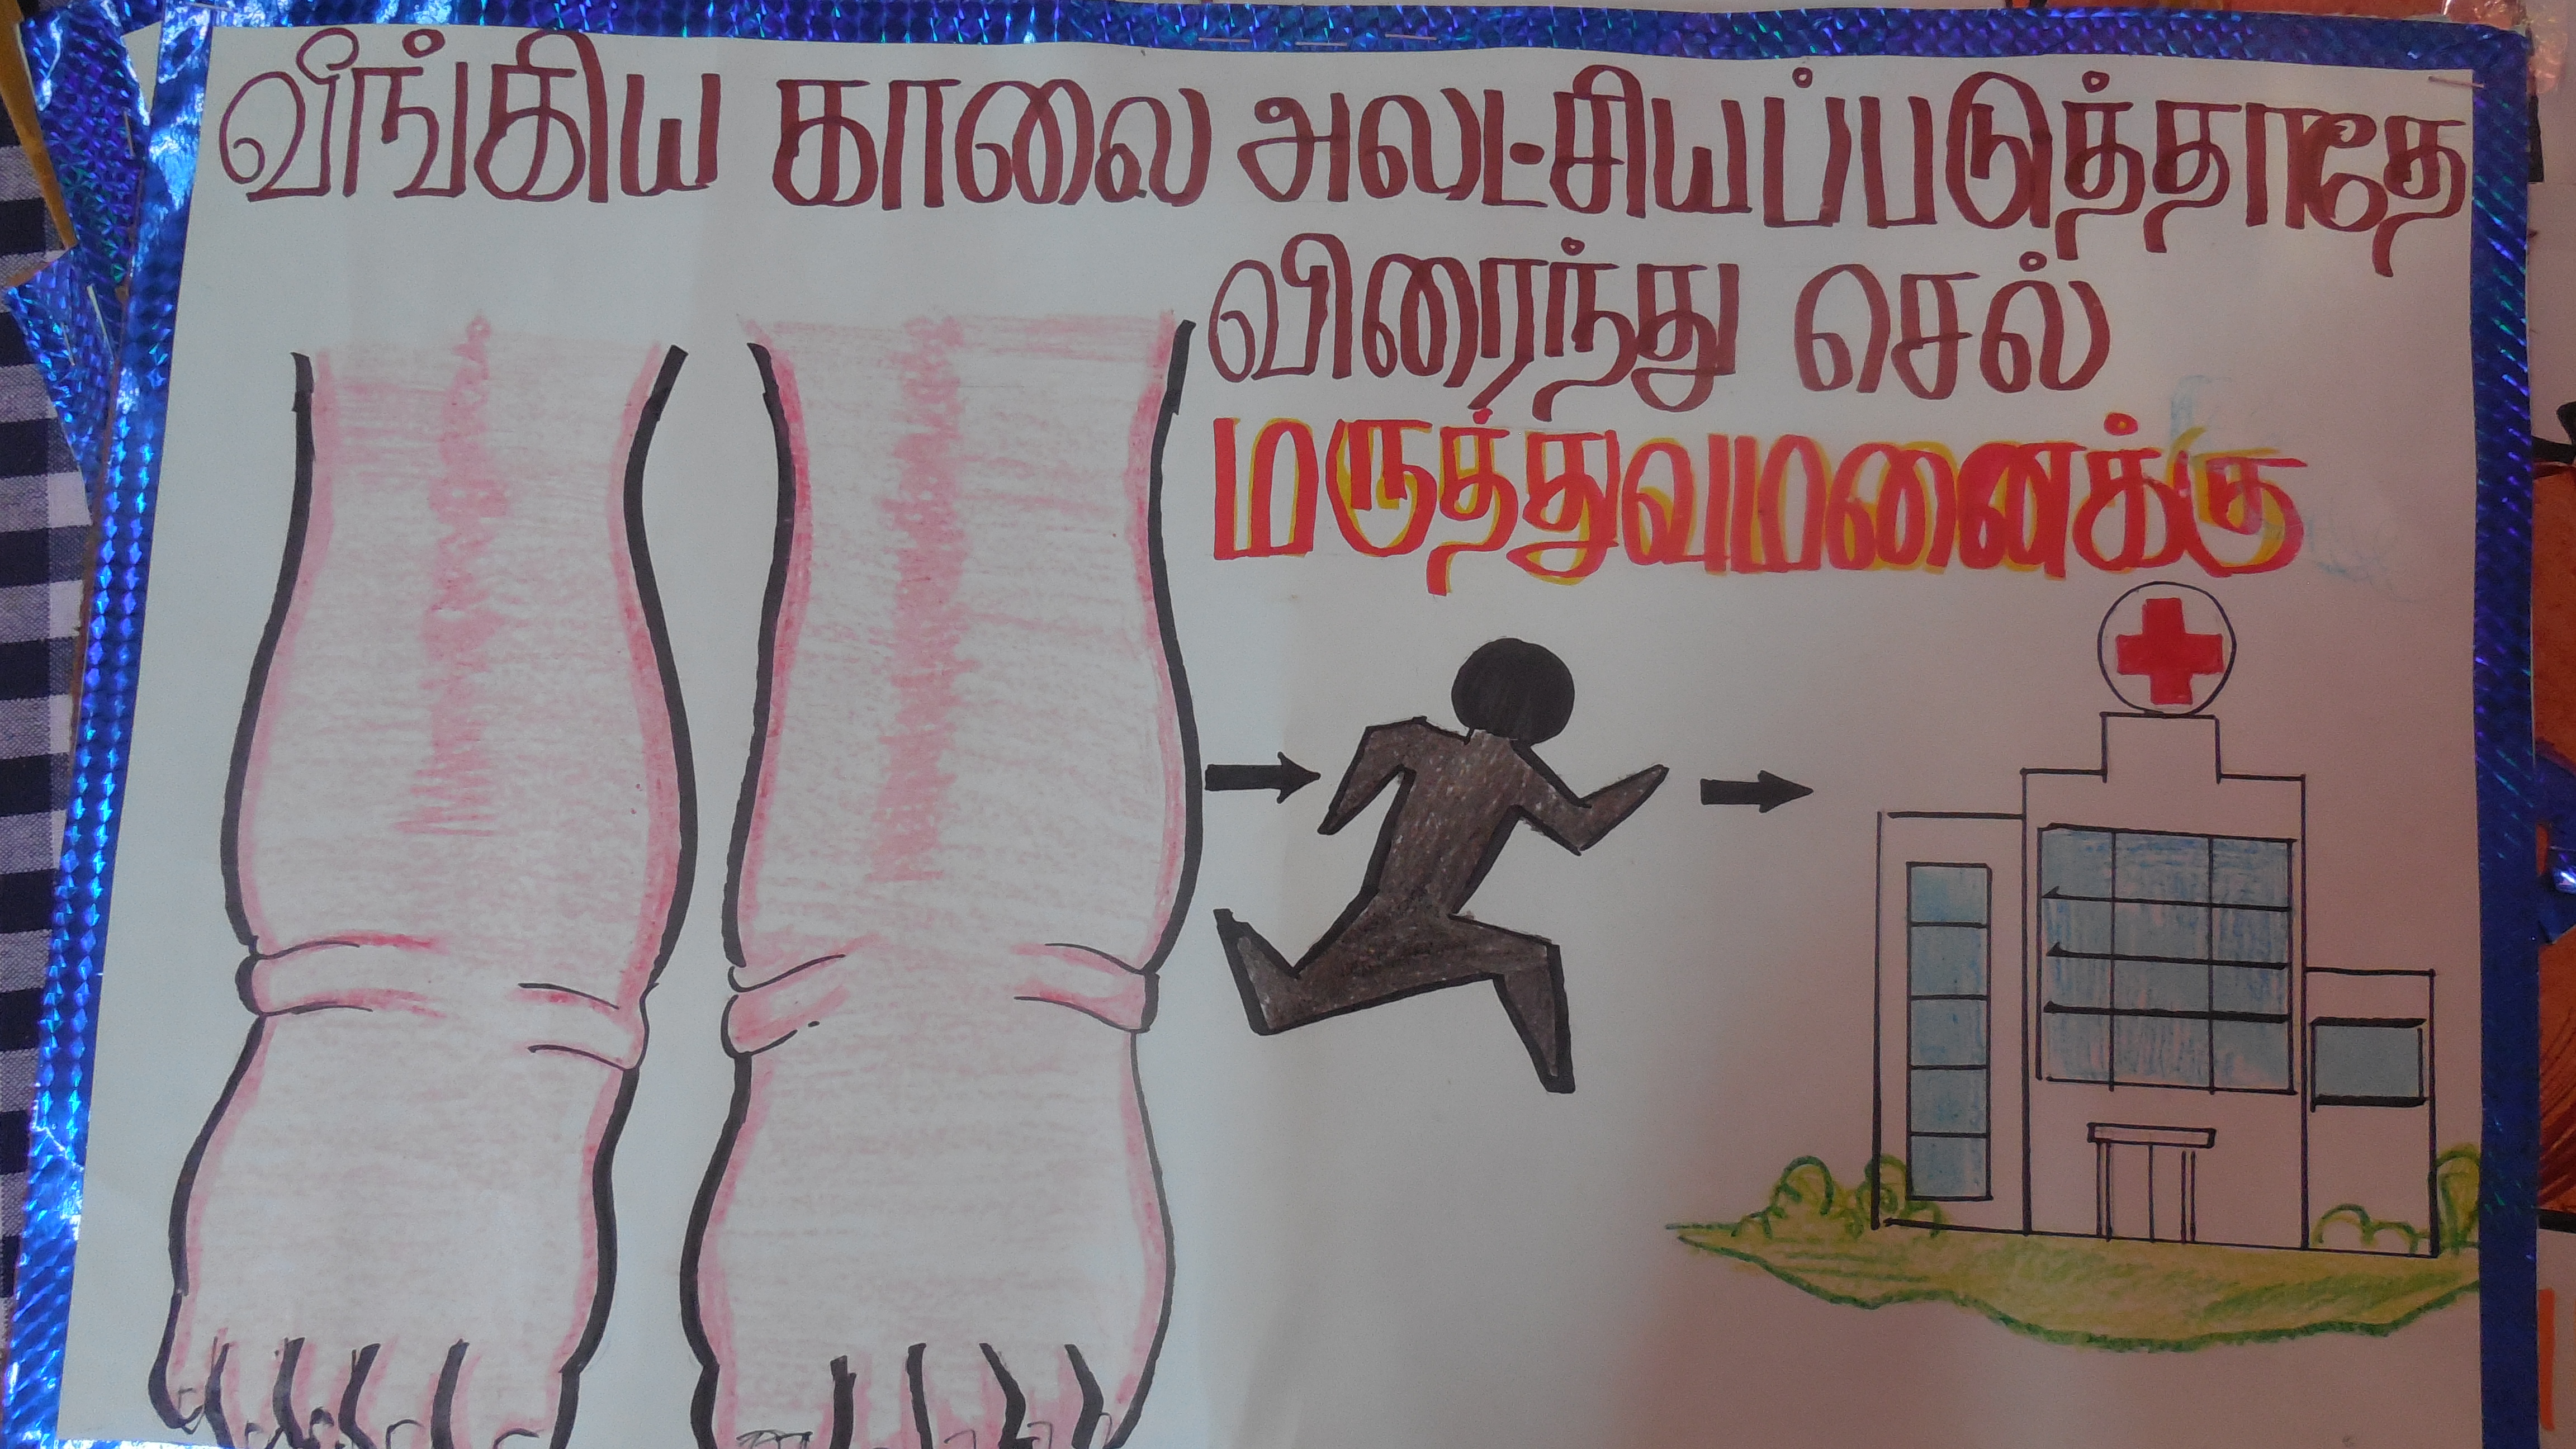 வீங்கிய காலை அலட்சியப்படுத்தாதே
விரைந்து செல்
மருத்துவமனைக்கு